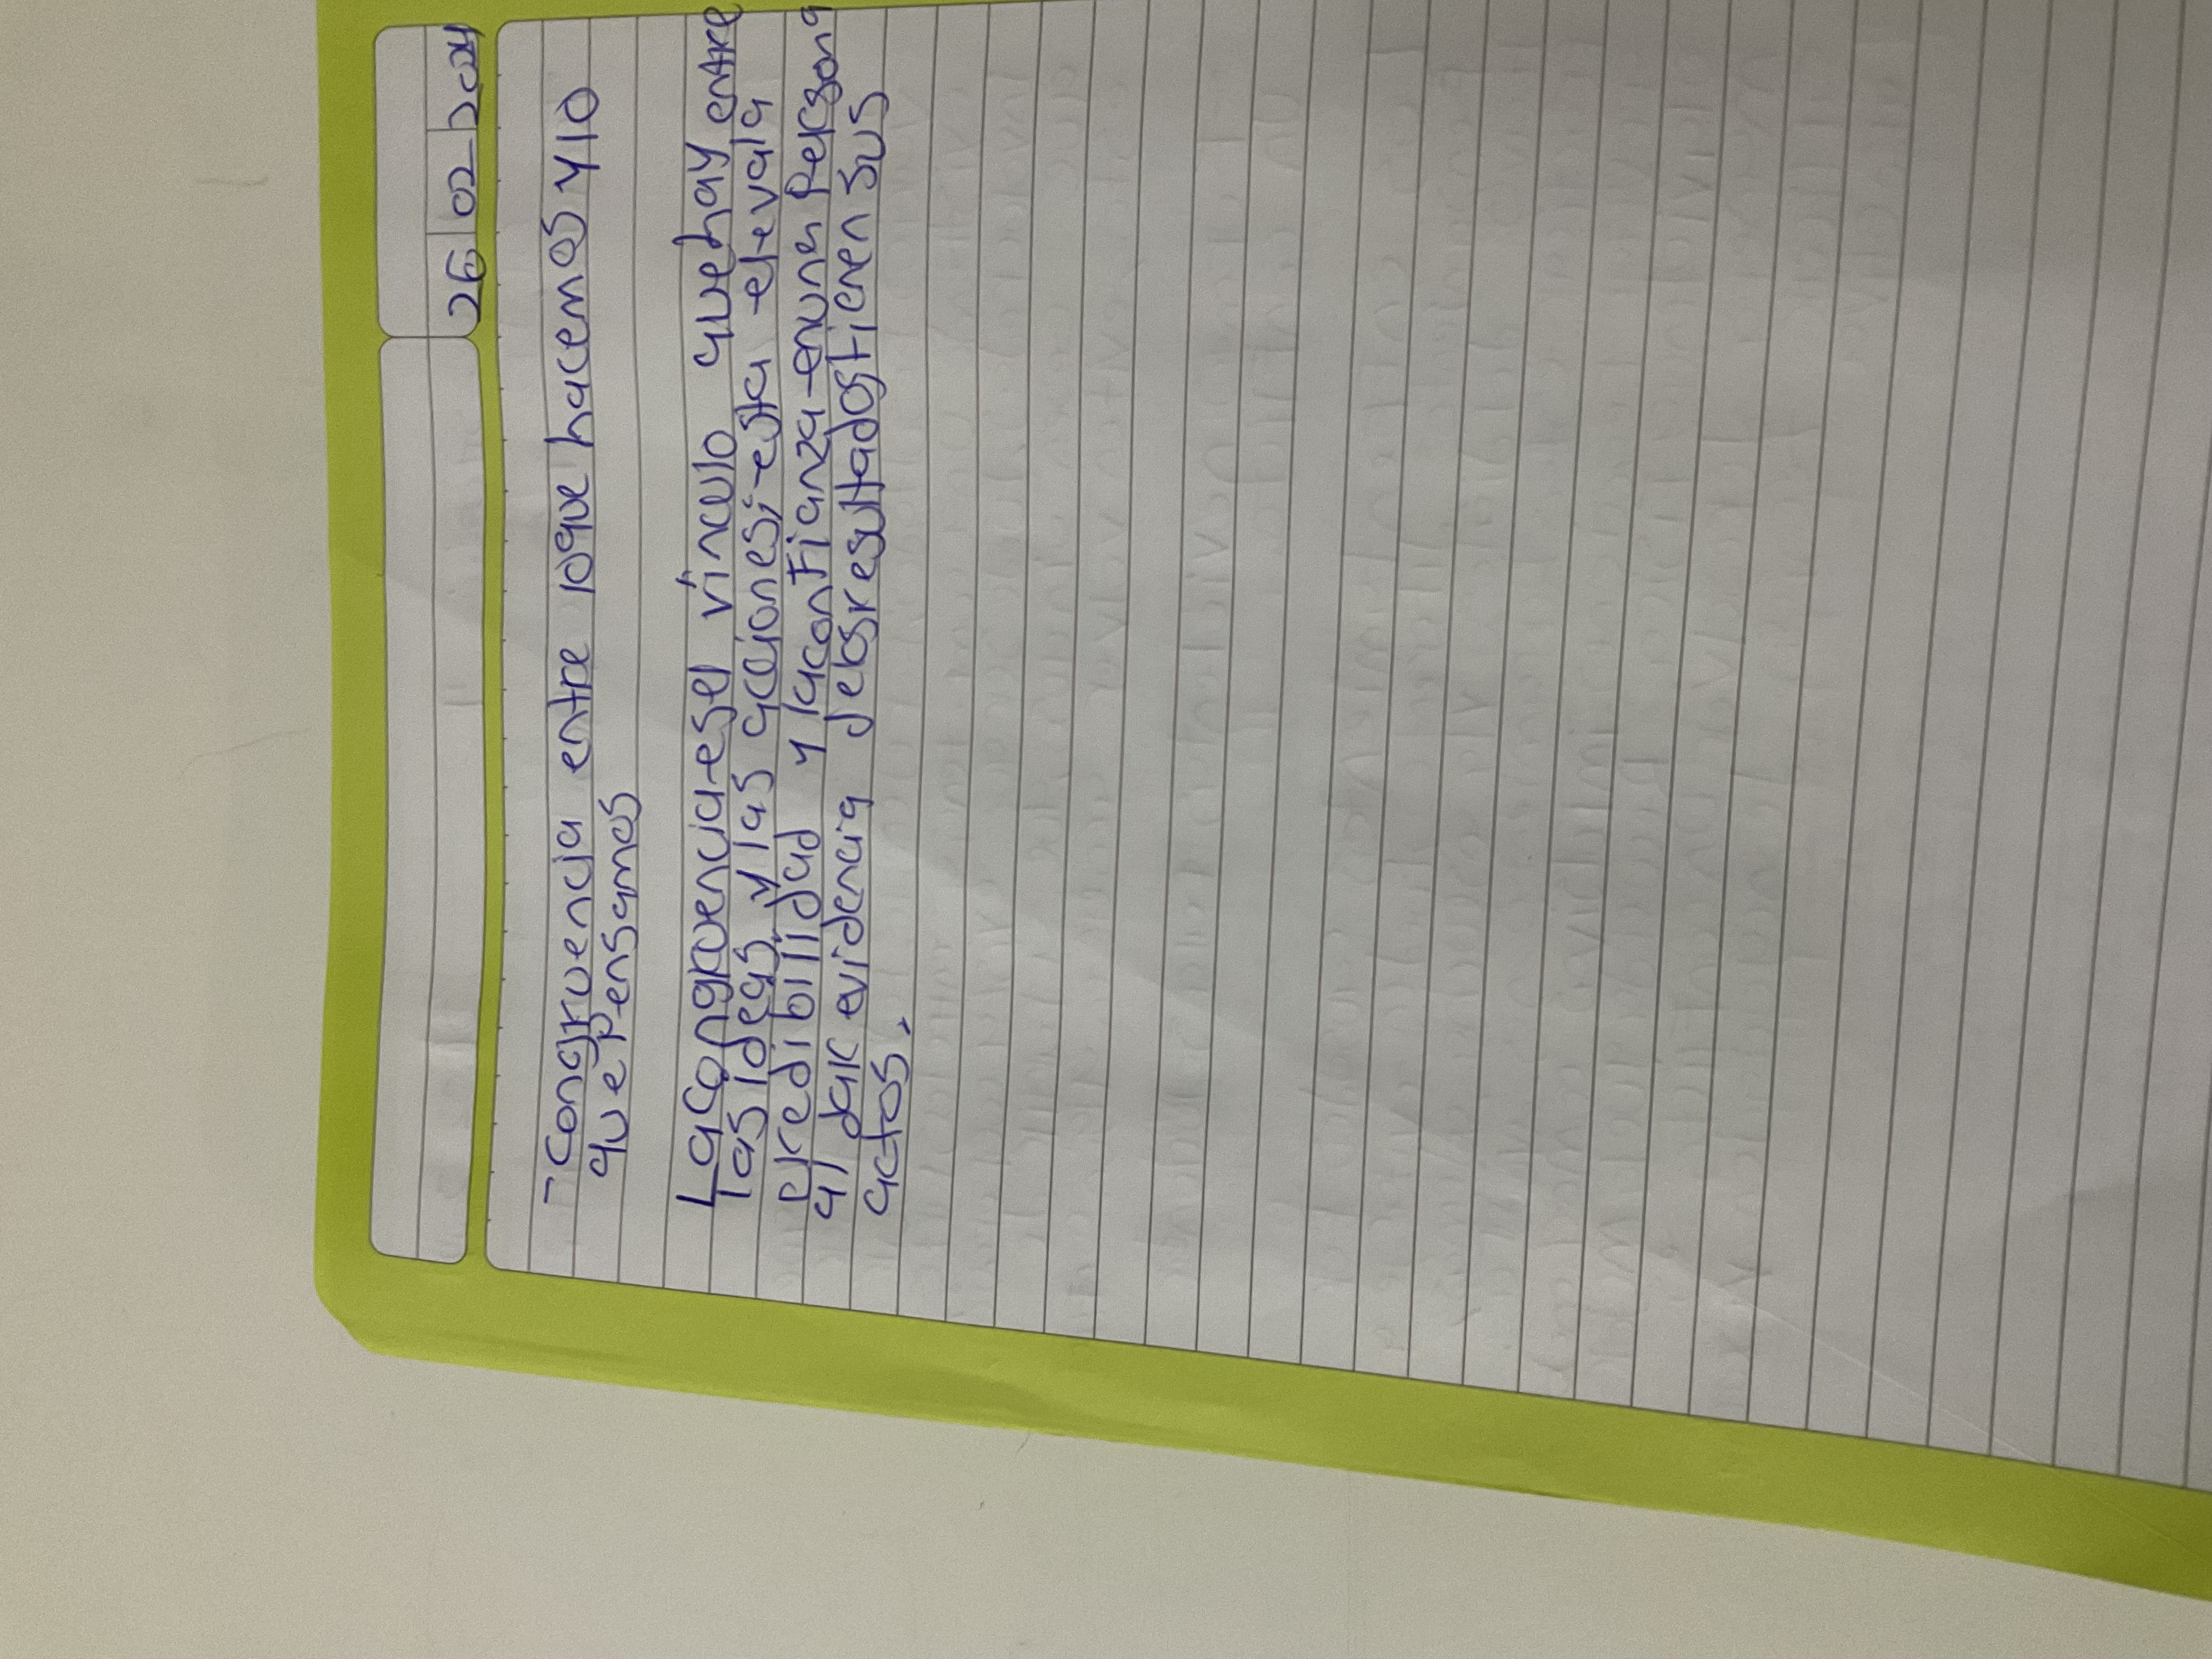 26 02 2024
- Congruencia entre lo que hacemos y lo
que pensamos
La Congruencia es el vínculo que hay entre
las ideas y las acciones; esta eleva la
credibilidad y la confianza en una persona
al dar evidencia de los resultados tienen sus
actos.